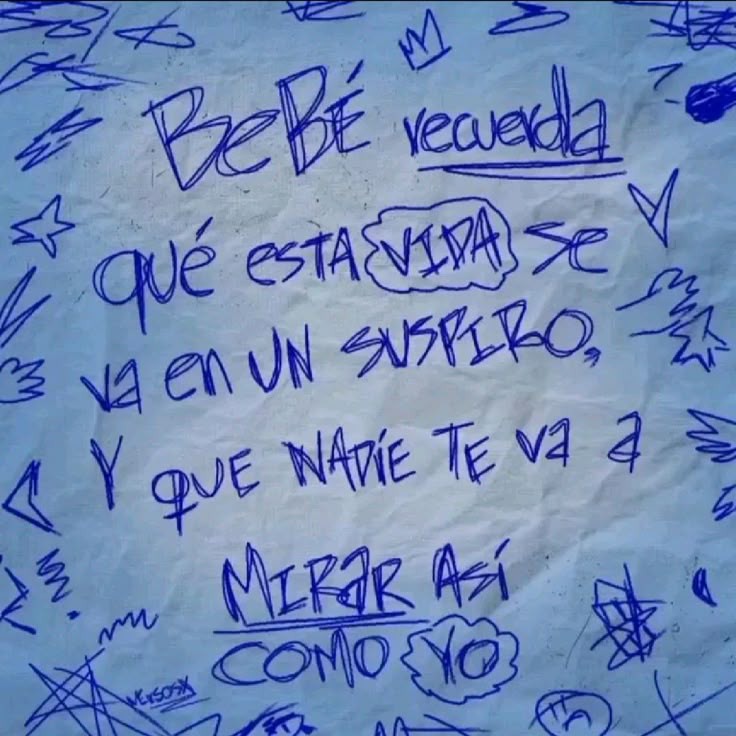 BeBÉ recuerda
QUÉ ESTA VIDA se
va en UN SUSPIRO,
Y QUE NADíE TE va a
MIRaR Así
COMO YO
versosx